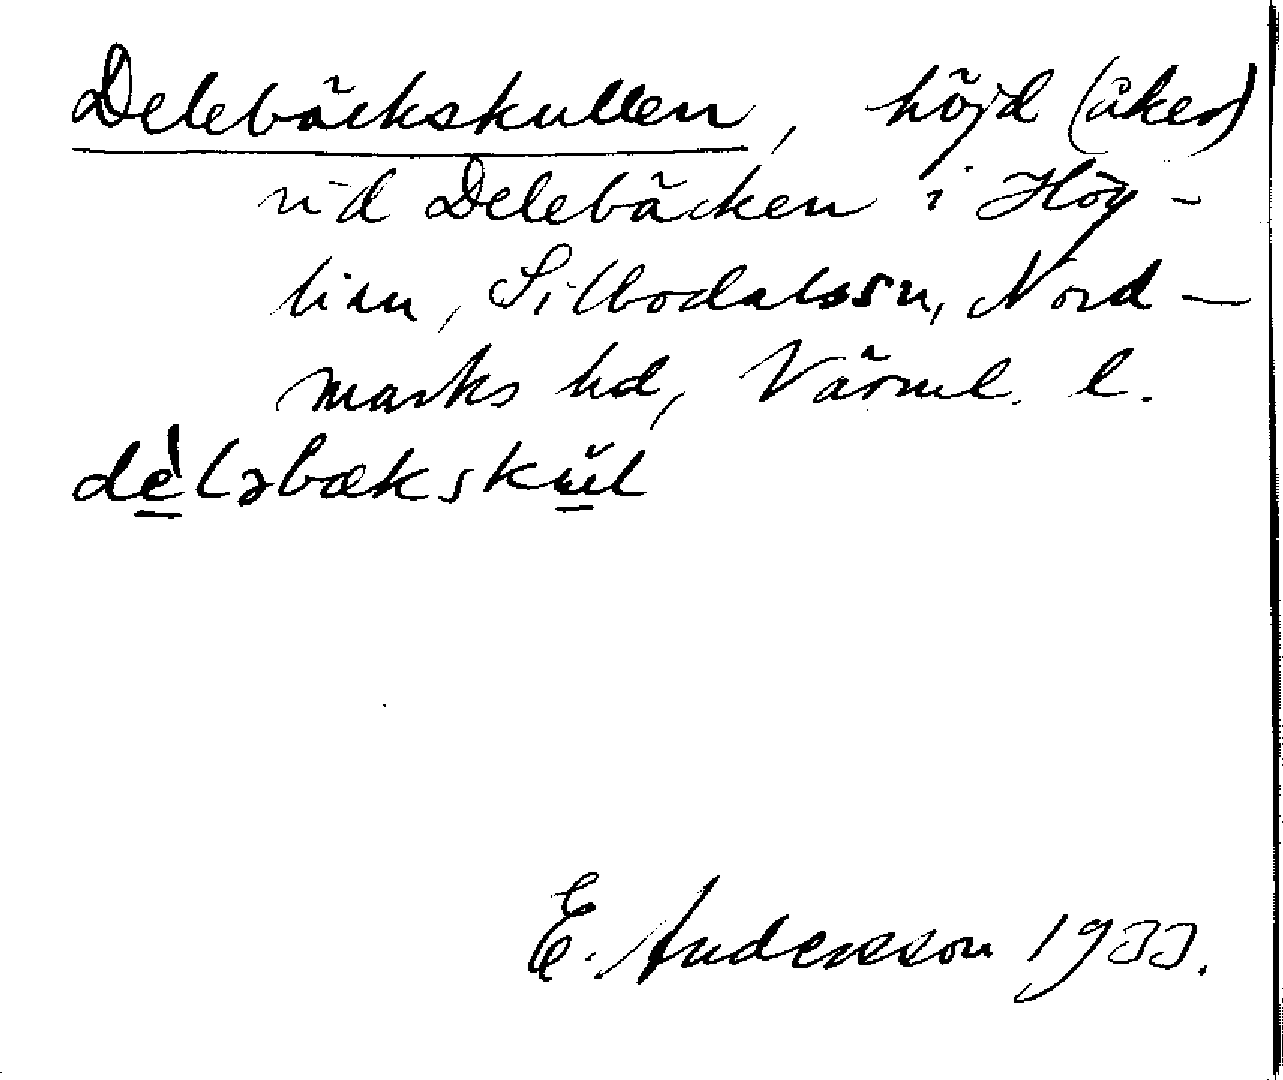 Delebäckskullen, höjd (åker)
vid Delebäcken i Hög-
lian, Silbodalssn, Nord-
marks hd, Värml. l.
dèləbækskŭl
E. Andersson 1933.